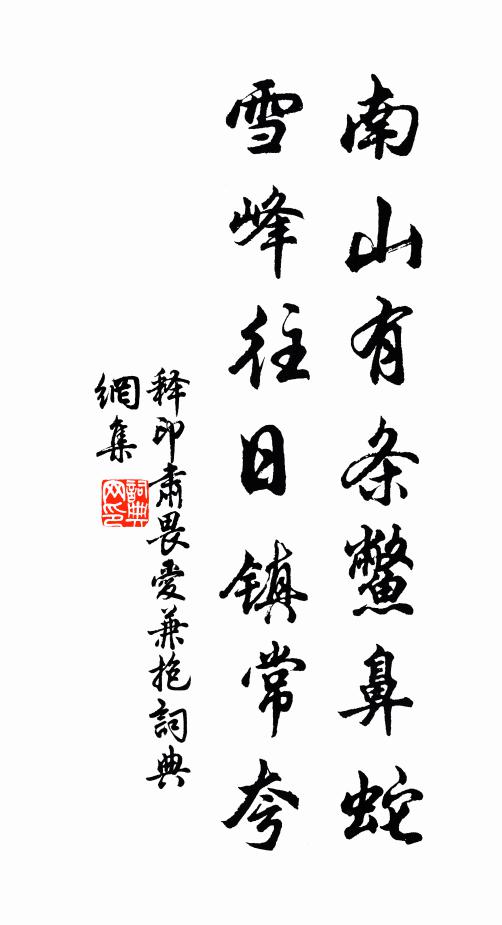 南山有条鱉鼻蛇
雪峰往日镇常夸
释印肃畏爱兼抱詞典
網集
詞典
网印